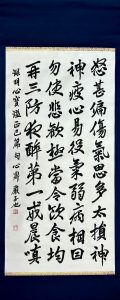 怒甚偏傷氣思多太損神
神疲心易役氣弱病相因
勿使悲歡極當令飲食均
再三防夜醉第一戒晨嗔
錄明心寶鑑正己篇句